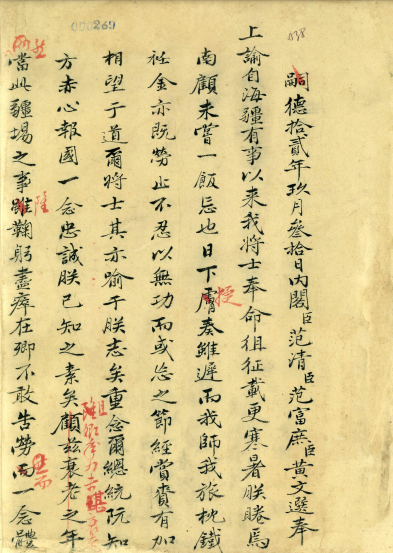 000269
嗣德拾貳年玖月叁拾日內閣臣范清臣范富庶臣黃文選奉
上諭自海疆有事以來我將士奉命徂征載更寒暑朕睠焉
南顧未嘗一飯忘也日下膚奏雖遲而我師我旅枕鐵
衽金亦既勞止不忍以無功而或忘之節經賞賚有加
相望于道爾將士其亦喻于朕志矣重念爾總統阮知
方赤心報國一念忠誠朕已知之素矣顧茲衰老之年
當此疆場之事雖鞠躬盡瘁在卿不敢告勞而一念體